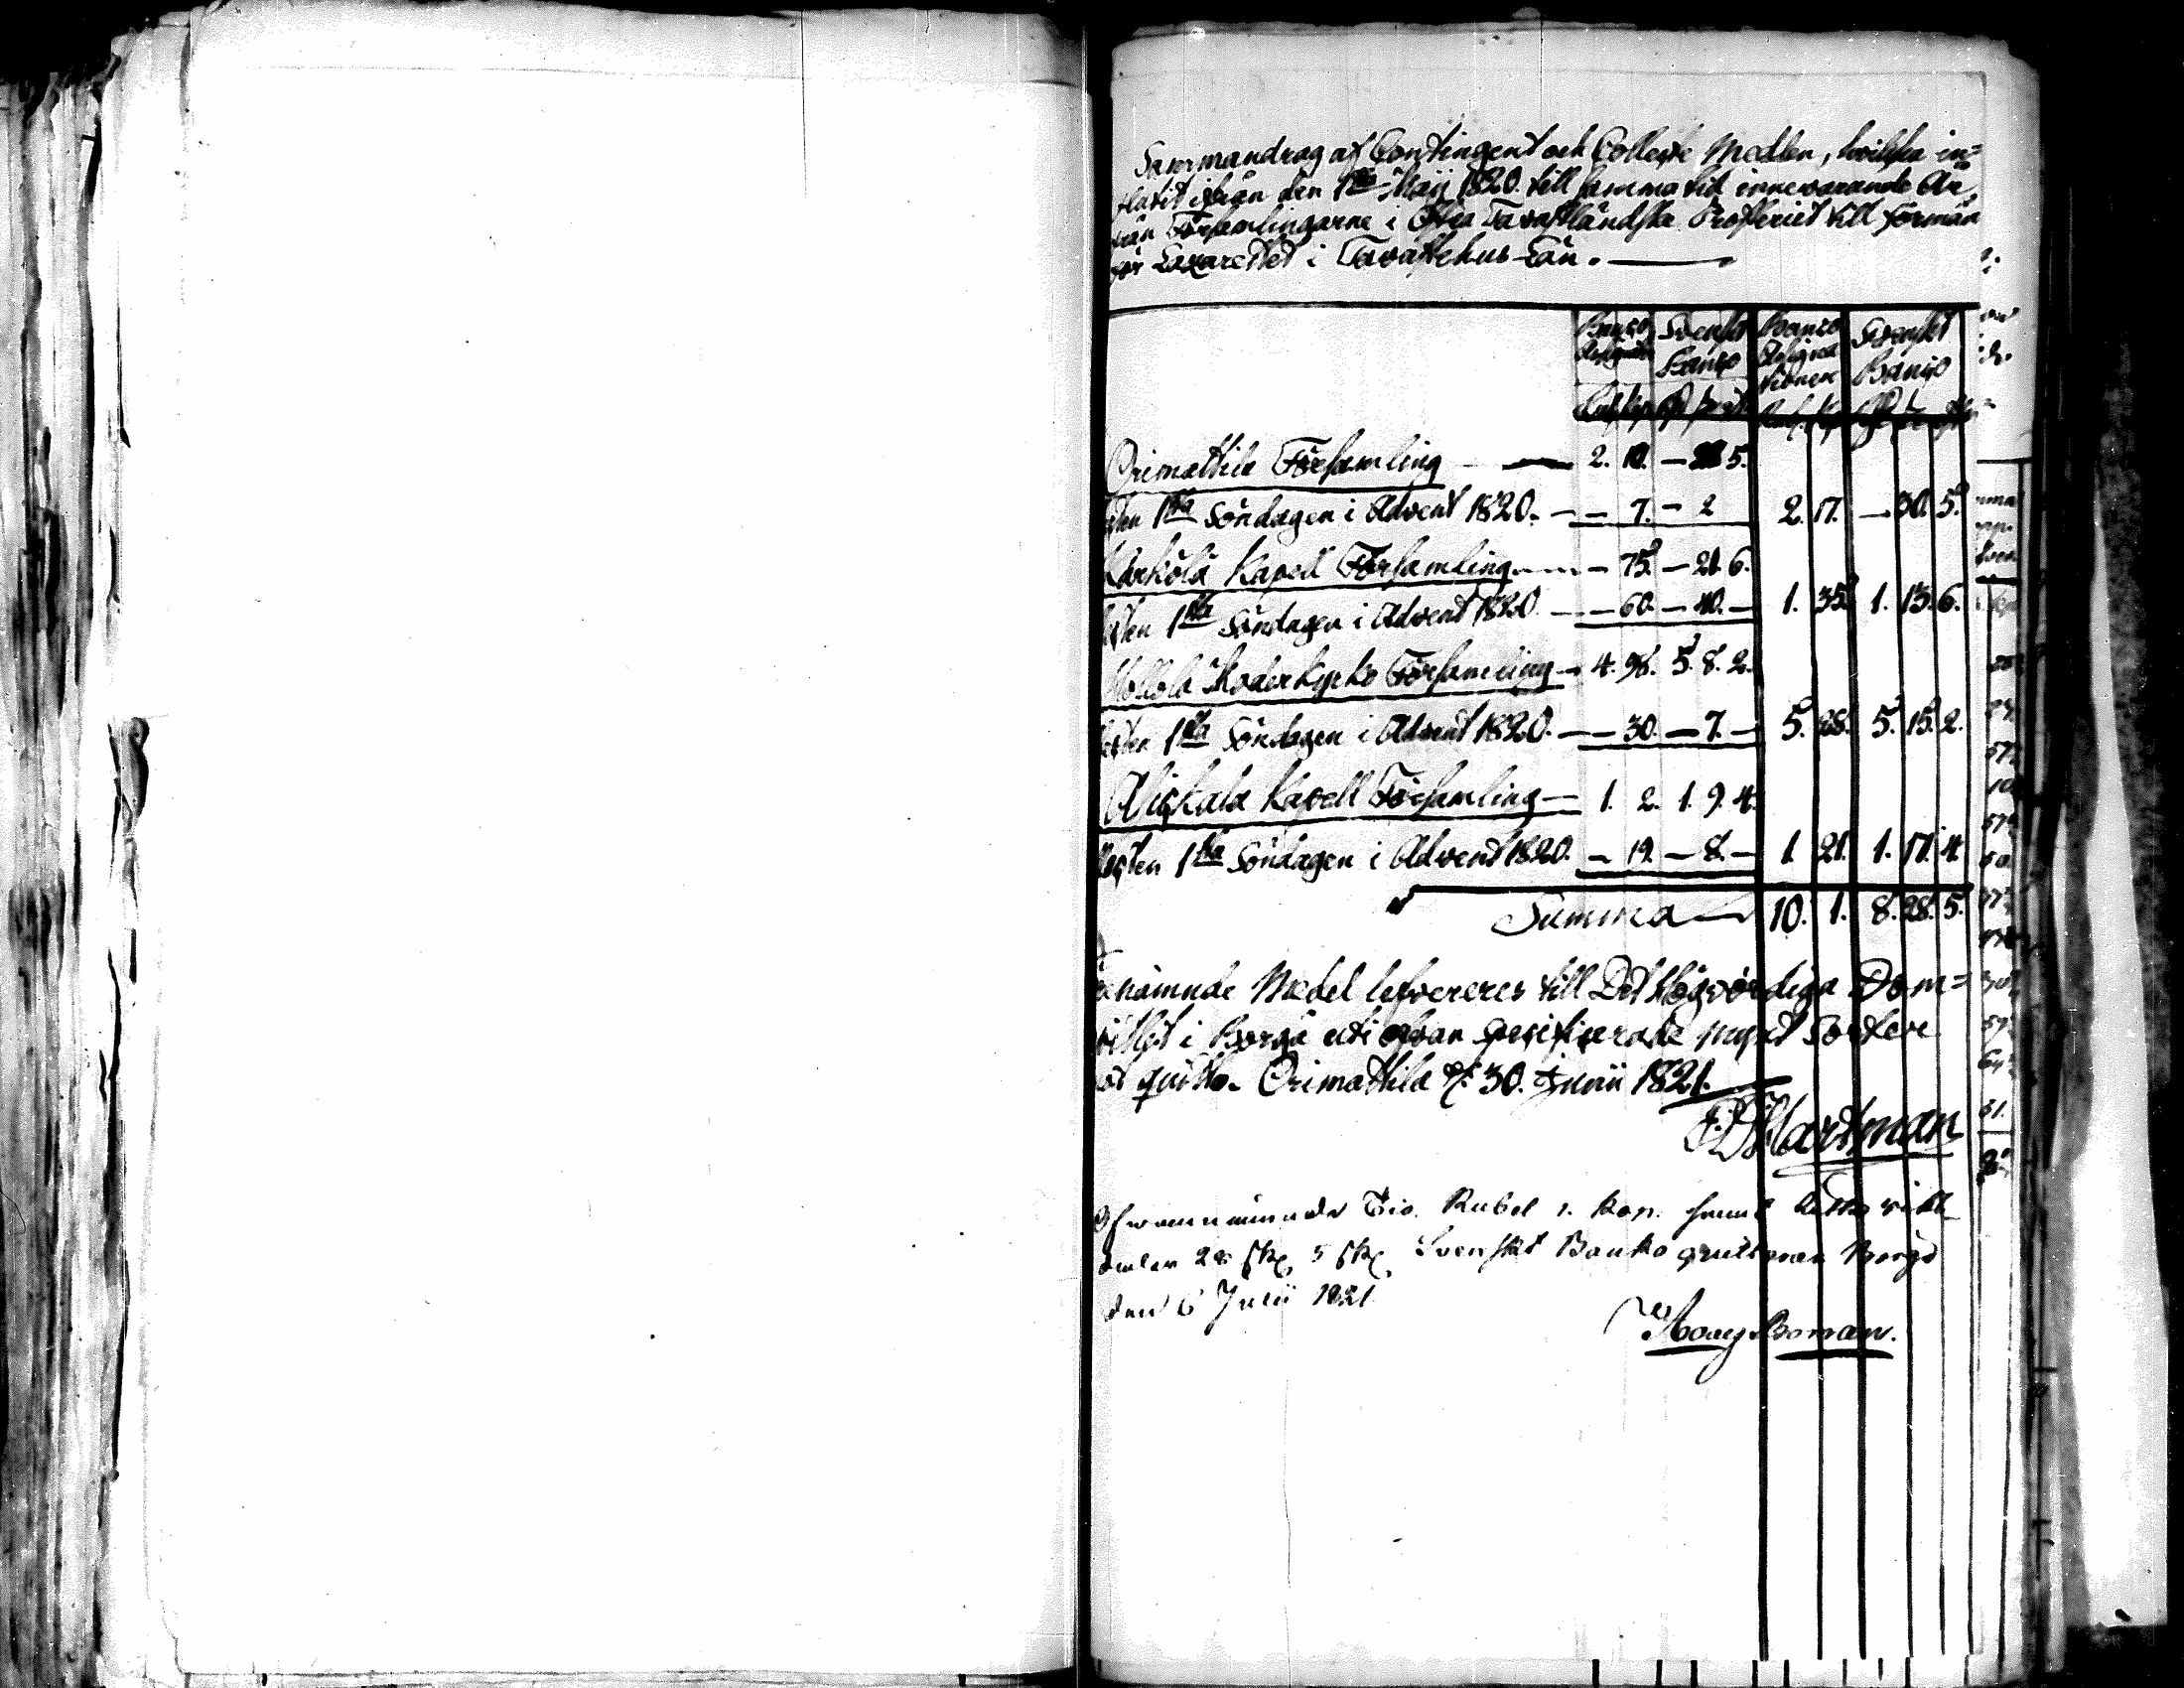 Sammandrag af Contingent och Collecte Medlen, hvilka in=
flutit ifrån den 1sta Maij 1820. till samma tid innevarande År,
från Församlingarne i Öfra Tavastländska Prosteriet till förmån
för Lazarettet i Tavastehus Län.
Banco Svenskt Banco Svenskt
Assignat. Banco Assigna Banco
tioner
Orimattila Församling 2. 10. — 28 5.
den 1sta Söndagen i Advent 1820. — 7. — 2 2. 17. — 30. 5.
Kärkölä Kapell Församling — 75. — 21. 6.
1sta Söndagen i Advent 1820. — 60. — 40. — 1. 35. 1. 13. 6.
Hollola Moderkyrko Församling 4. 98. 5. 8. 2.
1sta Söndagen i Advent 1820. — 30. — 7. — 5. 28. 5. 15. 2.
Kapell Församling 1. 2. 1. 9. 4.
1sta Söndagen i Advent 1820. — 19. — 8. — 1. 21. 1. 17. 4.
Summa 10. 1. 8. 28. 5.
Medel levereres till Det Högvördiga Dom=
i Borgå uti ofvan specificerade mynt Sorter
Orimattila d. 30. Junii 1821.
Hartman
Tio Rubel 1. Kop. samt
28 sk. 5 Svenskt Banko quitteras Borgå
den 6 Julii 1821.
Boman.